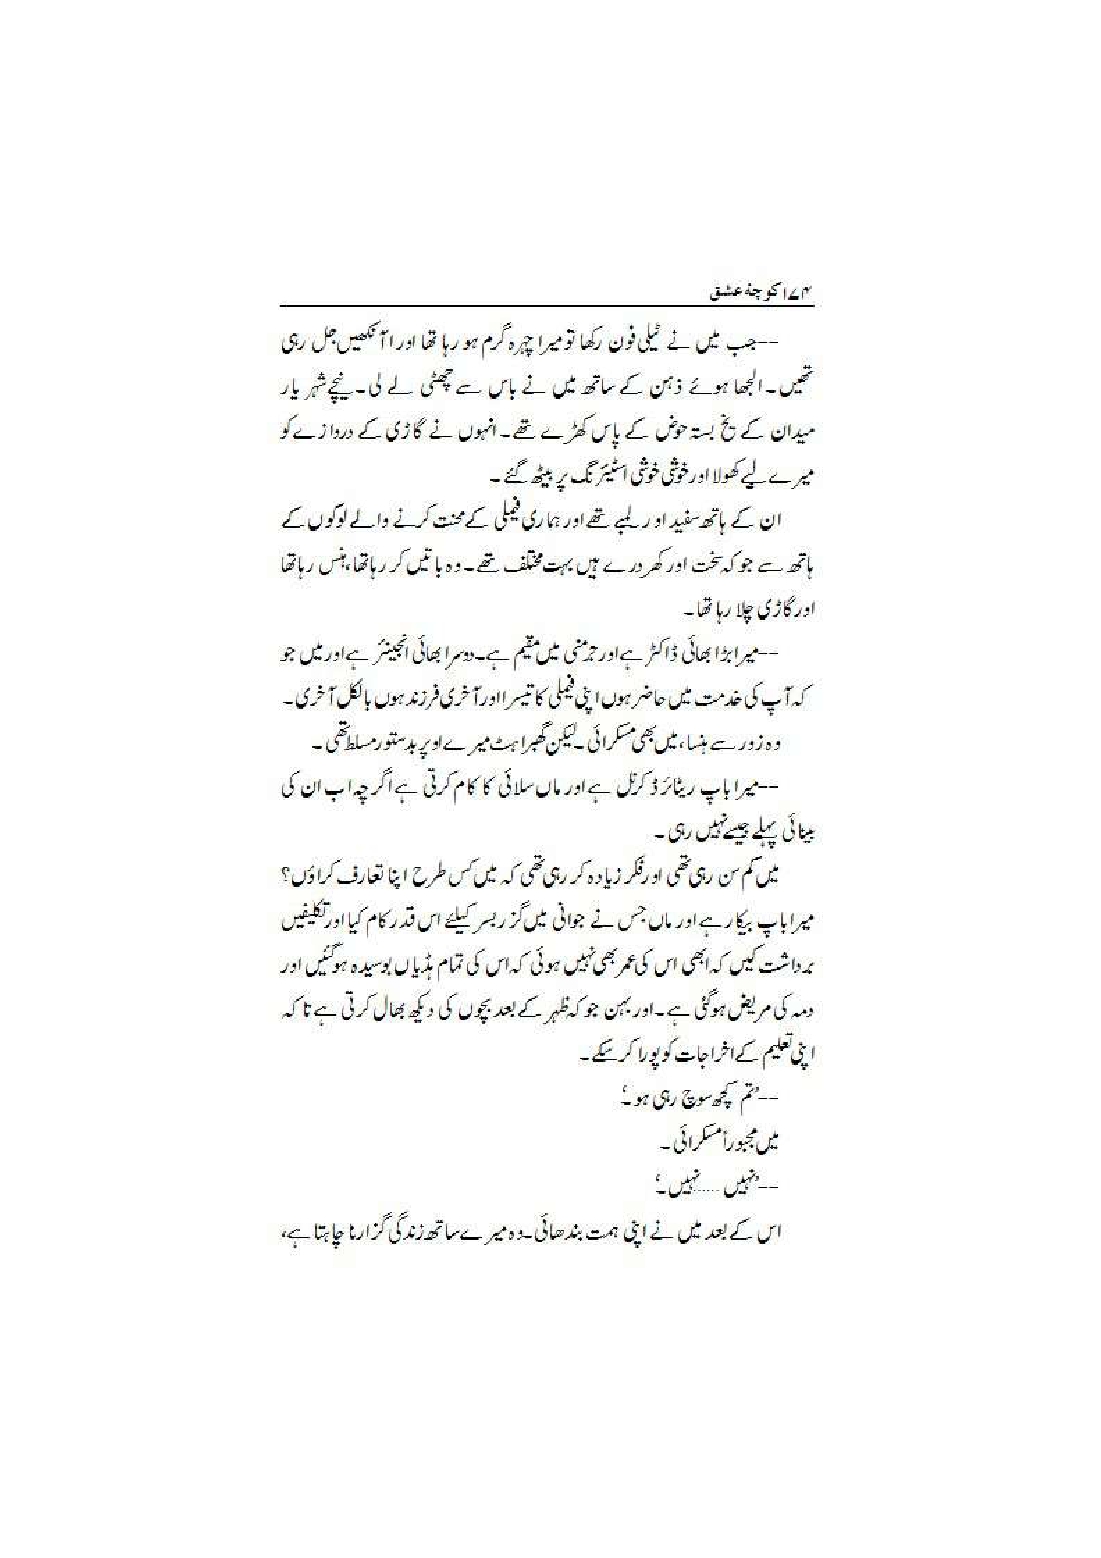 ۱۷۴ کوچۂ عشق
--جب میں نے ٹیلی فون رکھا تو میرا چہرہ گرم ہو رہا تھا اور اآنکھیں جل رہی
تھیں۔ الجھا ہوئے ذہن کے ساتھ میں نے باس سے چھٹی لے لی۔ نیچے شہر یار
میدان کے یخ بستہ حوض کے پاس کھڑے تھے۔ انہوں نے گاڑی کے دروازے کو
میرے لیے کھولا اور خوشی خوشی اسٹیرنگ پر بیٹھ گئے۔
ان کے ہاتھ سفید اور لمبے تھے اور ہماری فیملی کے محنت کرنے والے لوگوں کے
ہاتھ سے جو کہ سخت اور کھردرے ہیں بہت مختلف تھے۔ وہ باتیں کر رہا تھا، ہنس رہا تھا
اور گاڑی چلا رہا تھا۔
--میرا بڑا بھائی ڈاکٹر ہے اور جرمنی میں مقیم ہے۔ دوسرا بھائی انجینئر ہے اور میں جو
کہ آپ کی خدمت میں حاضر ہوں اپنی فیملی کا تیسرا اور آخری فرزند ہوں بالکل آخری۔
وہ زور سے ہنسا، میں بھی مسکرائی۔ لیکن گھبراہٹ میرے اوپر بدستور مسلط تھی۔
--میرا باپ ریٹائرڈ کرنل ہے اور ماں سلائی کا کام کرتی ہے اگر چہ اب ان کی
بینائی پہلے جیسے نہیں رہی۔
میں کم سن رہی تھی اور فکر زیادہ کر رہی تھی کہ میں کس طرح اپنا تعارف کراؤں؟
میرا باپ بیکار ہے اور ماں جس نے جوانی میں گزر بسر کیلئے اس قدر کام کیا اور تکلیفیں
برداشت کیں کہ ابھی اس کی عمر بھی نہیں ہوئی کہ اس کی تمام ہڈیاں بوسیدہ ہوگئیں اور
دمہ کی مریض ہوگئی ہے۔ اور بہن جو کہ ظہر کے بعد بچوں کی دیکھ بھال کرتی ہے تا کہ
اپنی تعلیم کے اخراجات کو پورا کر سکے۔
--’تم کچھ سوچ رہی ہو۔‘
میں مجبوراً مسکرائی۔
--’نہیں ..... نہیں۔‘
اس کے بعد میں نے اپنی ہمت بندھائی۔ وہ میرے ساتھ زندگی گزارنا چاہتا ہے،